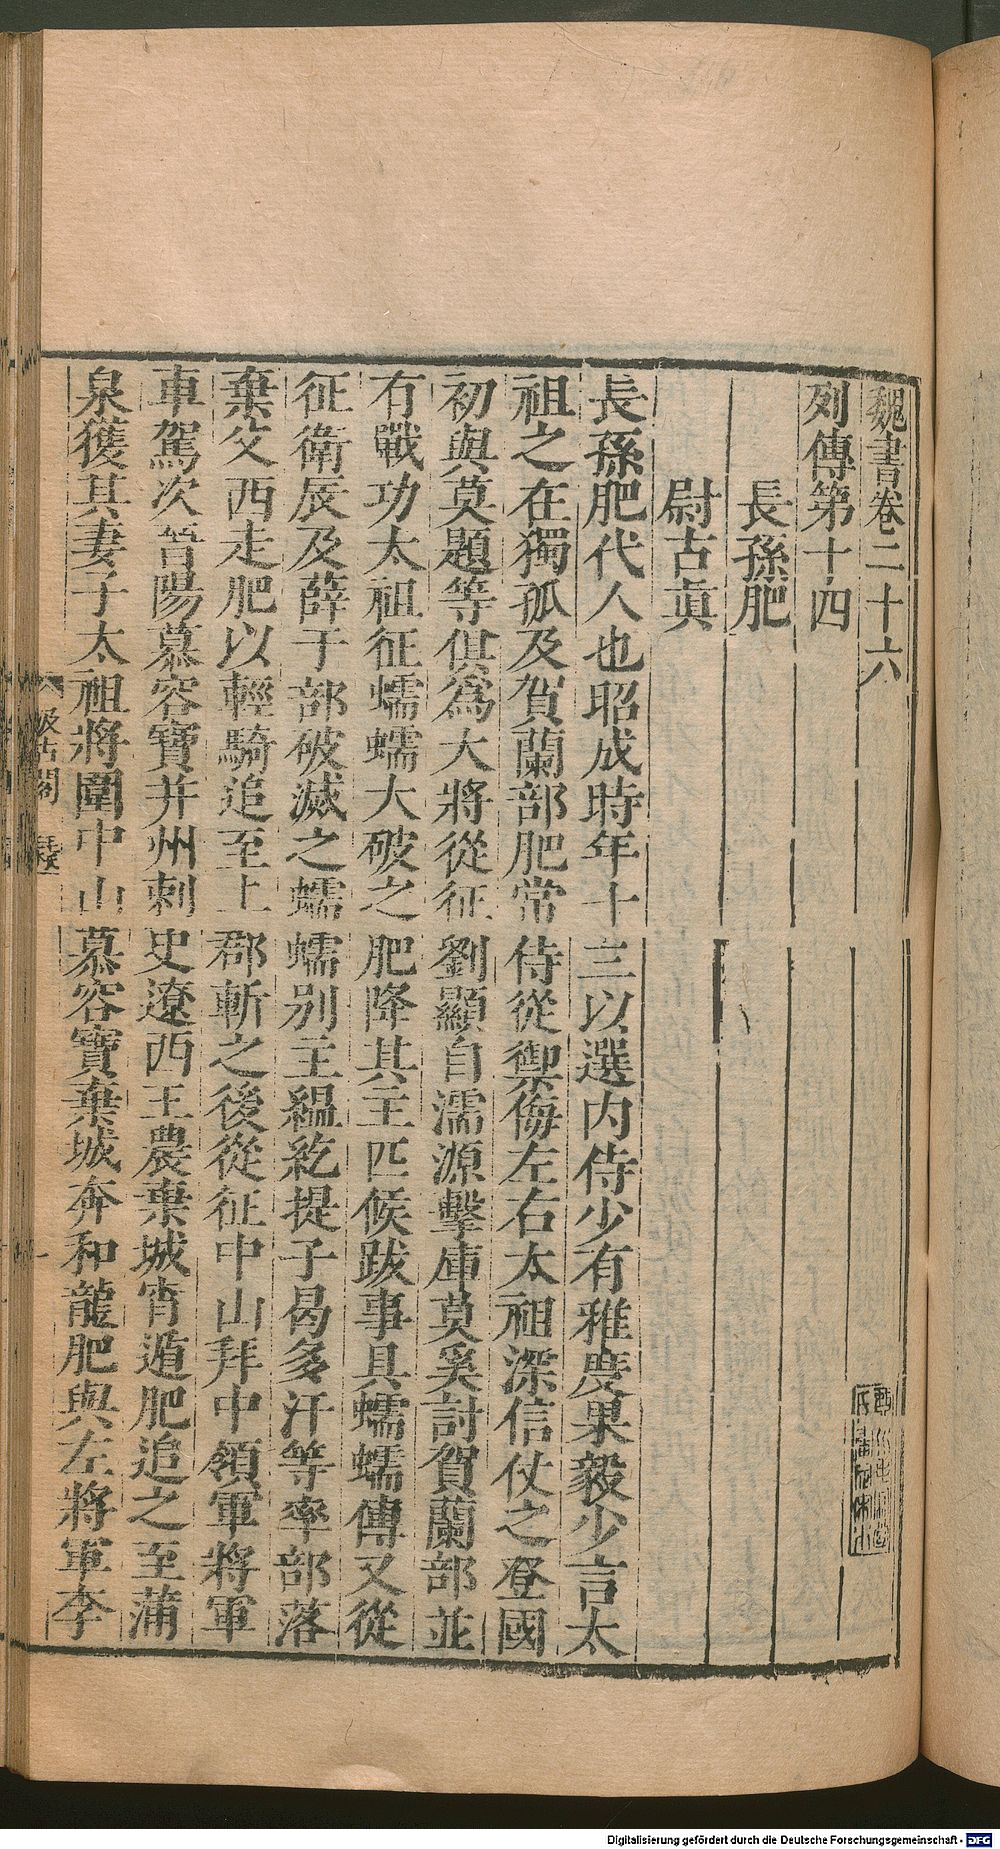 魏書卷二十六
列傳第十四
長孫肥
尉古眞
長孫肥代人也昭成時年十三以選内侍少有雅度果毅少言太
祖之在獨孤及賀蘭部肥常侍從禦侮左右太祖深信仗之登國
初與莫題等俱爲大將從征劉顯自濡源擊庫莫奚討賀蘭部並
有戰功太祖征蠕蠕大破之肥降其主匹候跋事具蠕蠕傳又從
征衛辰及薛干部破滅之蠕蠕别主緼紇提子曷多汗等率部落
棄父西走肥以輕騎追至上郡斬之後從征中山拜中領軍將軍
車駕次晉陽慕容寶并州刺史遼西王農棄城宵遁肥追之至蒲
泉獲其妻子太祖將圍中山慕容寶棄城奔和龍肥與左將軍李
汲古閣
Digitalisierung gefördert durch die Deutsche Forschungsgemeinschaft - DFG